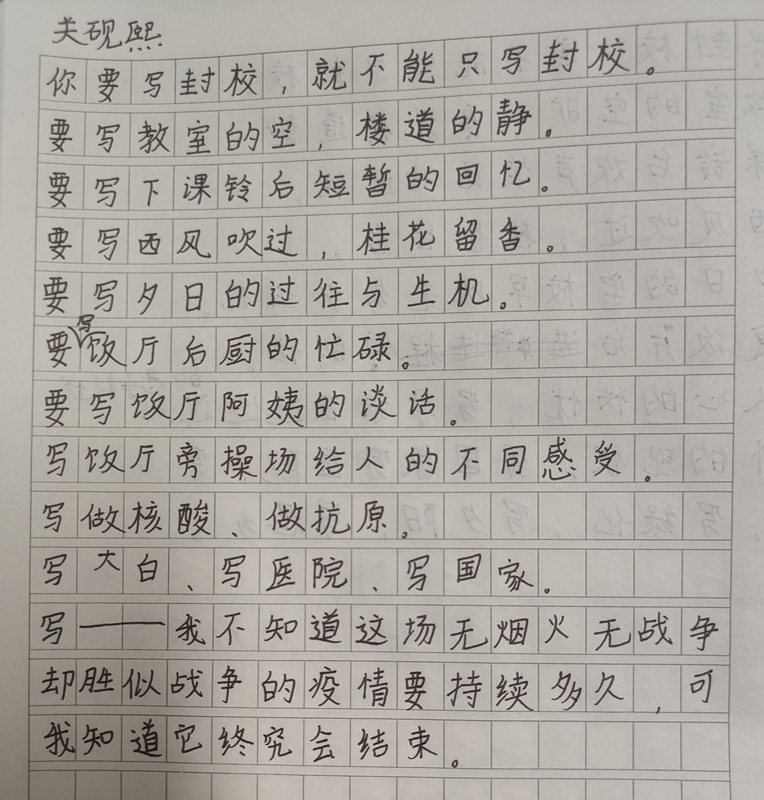 关砚熙
你要写封校，就不能只写封校。
要写教室的空，楼道的静。
要写下课铃后短暂的回忆。
要写西风吹过，桂花留香。
要写夕日的过往与生机。
要写饭厅后厨的忙碌。
要写饭厅阿姨的谈话。
写饭厅旁操场给人的不同感受。
写做核酸、做抗原。
写大白、写医院、写国家。
写——我不知道这场无烟火无战争
却胜似战争的疫情要持续多久，可
我知道它终究会结束。